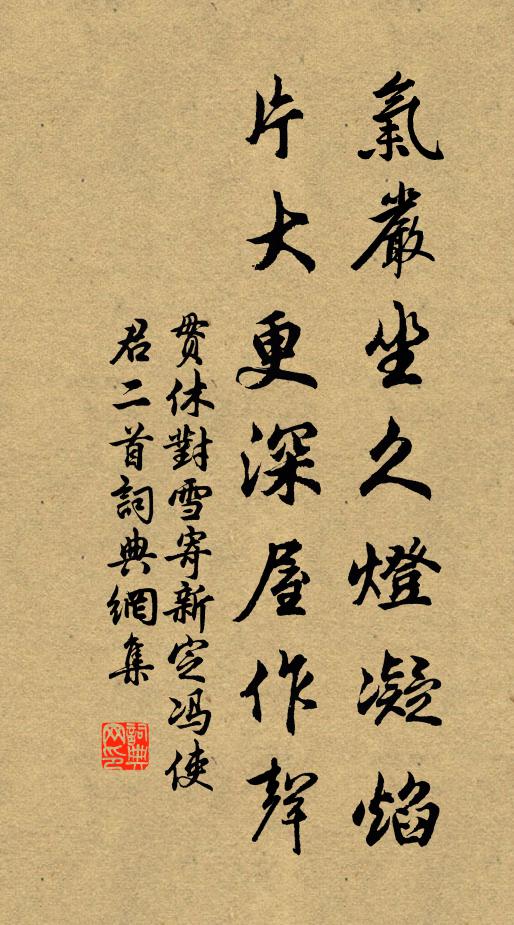 氣嚴坐久燈凝焰
片大更深屋作聲
貫休對雪寄新定馮使
君二首詞典網集
詞典
网印